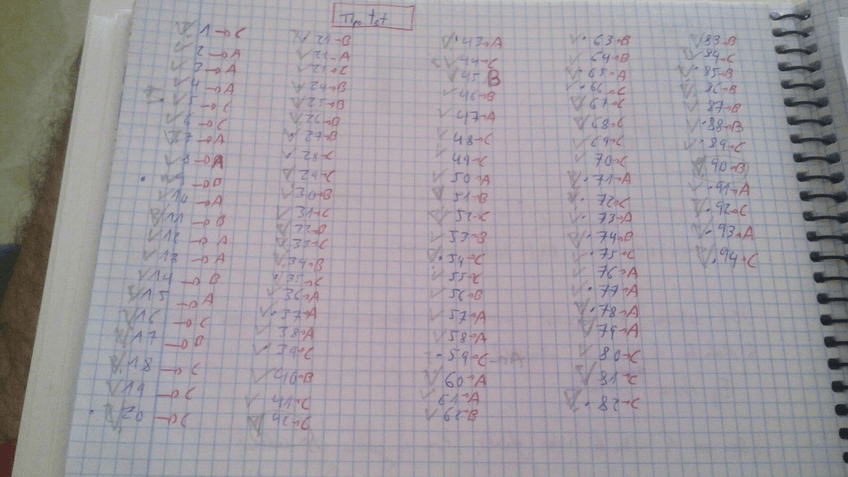 Tipo test
1→C
2→A
3→A
4→A
5→C
6→C
7→A
8→A
9→B
10→A
11→B
12→A
13→A
14→B
15→A
16→C
17→B
18→C
19→C
20→C
21-B
24-B
25-B
26-B
27-B
28-C
29-C
30-B
31-C
32-B
33-C
34-B
35-C
36-A
37-A
38-A
39-C
40-B
41-C
42-C
43-A
44-C
45-B
46-B
47-A
48-C
49-C
50-A
51-B
52-C
53-B
54-C
55-C
56-B
57-A
58-A
59-C-A
60-A
61-A
62-B
63-B
64-B
65-A
66-C
67-C
68-C
69-C
70-C
71-A
72-C
73-A
74-B
75-C
76-A
77-A
78-A
79-A
80-C
81-C
82-C
83-B
84-C
85-B
86-B
87-B
88-B
89-C
90-B
91-A
92-C
93-A
94-C